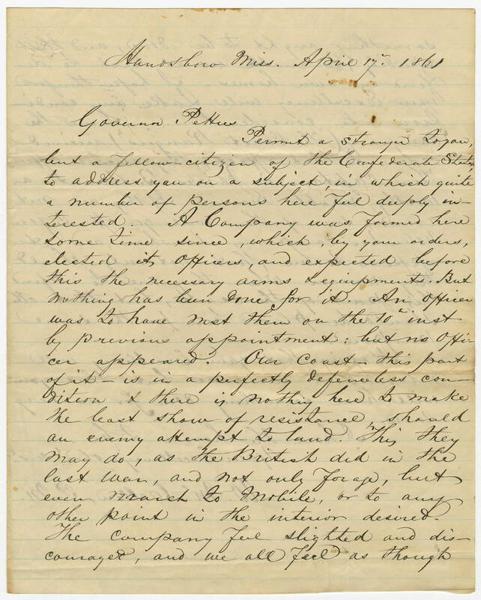 Handsboro Miss. April 17th 1861
Governor Pettus
Permit a stranger to you,
but a fellow-citizen of the Confederate States
to address you on a subject, in which quite
a number of persons here feel deeply in-
terested. A Company was formed here
some time since, which, by your orders,
elected its officers, and expected before
this the necessary arms & equipments. But
nothing has been done for it. An officer
was to have met them on the 10th inst
by previous appointment; but no Offi-
cer appeared. Our coast - this part
of it - is in a perfectly defenceless con-
dition & there is nothing here to make
the least show of resistance, should
an enemy attempt to land. This they
may do, as the British did in the
last war, and not only forage, but
even march to Mobile, or to any
other point in the interior desired.
The company feel slighted and dis-
couraged, and we all feel as though